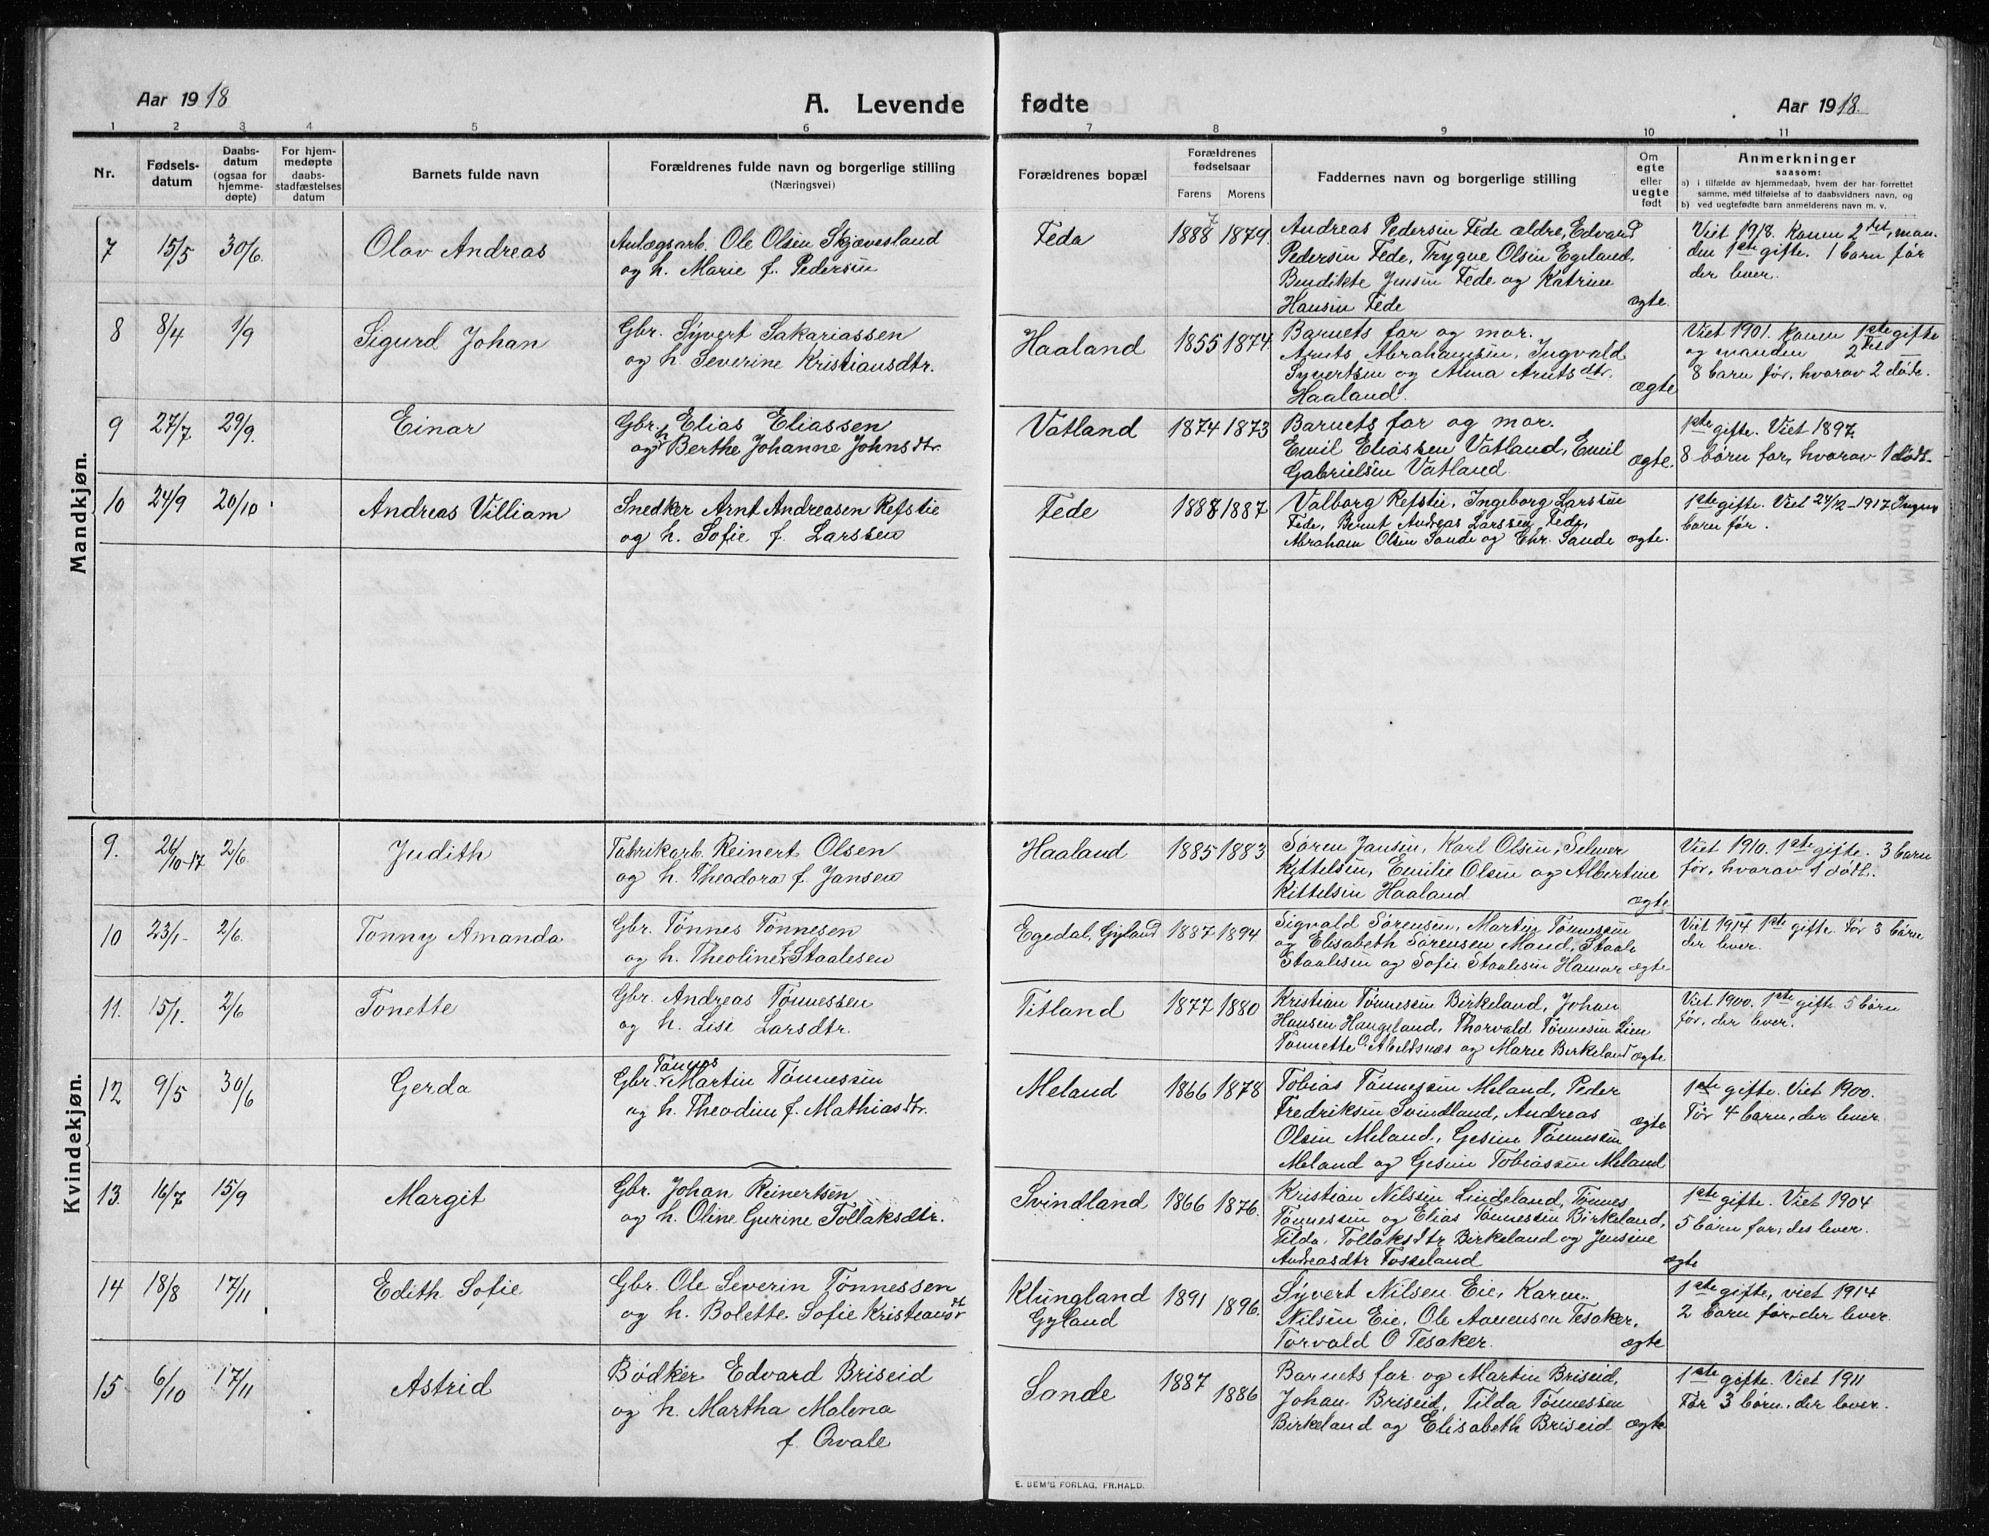 Aar 1918
A. Levende fødte
Aar 1918.
1 2 3 4 5 6 7 8 9 10 11
Nr.
Fødsels-
datum
Daabs-
datum
(ogsaa for
hjemme-
døpte)
For hjem-
medøpte
daabs-
stadfæstelses
datum
Barnets fulde navn
Forældrenes fulde navn og borgerlige stilling
(Næringsvei)
Forældrenes bopæl
Forældrenes
fødselsaar
Farens Morens
Faddernes navn og borgerlige stilling
Om
egte
eller
uegte
født
Anmerkninger
saasom:
a) i tilfælde av hjemmedaab, hvem der har forrettet
samme, med tilføielse af to daabsvidners navn, og
b) ved uegtefødte barn anmelderens navn m. v.
Mandkjøn.
7 15/5 30/6. Olav Andreas
Anlægsarb. Ole Olsen Skjævesland
og h. Marie f. Pedersen
Feda 1888 7 1879.
Andreas Pedersen Fede ældre, Edvard
Pedersen Fede, Trygve Olsen Egeland,
Bendikte Jensen Fede og Katrine
Hansen Fede
ægte.
Viet 1918. Konen 2det, man-
den 1ste gifte. 1 barn før
der lever.
8 8/4 1/9 Sigurd Johan
Gbr. Syvert Sakariassen
og h. Severine Kristiansdtr.
Haaland 1855 1874
Barnets far og mor.
Arnts Abrahamsen, Ingvald
Syvertsen og Alma Arntsdtr.
Haaland.
ægte
Viet 1901. Konen 1ste gifte
og manden 2det
8 barn før, hvorav 2 døde.
9 27/7 29/9. Einar
Gbr. Elias Eliassen
og h Berthe Johanne Johnsdtr.
Vatland 1874 1873
Barnets far og mor.
Emil Eliassen Vatland, Emil
Gabrielsen Vatland
ægte.
1ste gifte. Viet 1897.
8 børn før, hvorav 1 dødt.
10 24/9 20/10 Andreas Villiam
Snedker Arnt Andreasen Refstie
og h. Sofie f. Larssen
Fede 1888 1887
Valborg Refstie, Ingeborg Larssen
Fede, Bernt Andreas Larssen Fede,
Abraham Olsen Sande og Chr. Sande
ægte.
1ste gifte. Viet 24/12-1917 Ingen
barn før.
Kvindekjøn.
9. 26/10-17 2/6. Judith
Fabrikarb. Reinert Olsen
og h. Theodora f. Jansen
Haaland 1885 1883
Søren Jansen, Karl Olsen, Selmer
Kittelsen, Emilie Olsen og Albertine
Kittelsen Haaland
ægte
Viet 1910. 1ste gifte. 3 barn
før, hvorav 1 dødt.
10 23/1- 2/6. Tonny Amanda
Gbr. Tønnes Tønnesen
og h. Theoline f. Staalesen
Egedal, Gyland 1887 1894
Sigvald Sørensen, Martin Tønnessen
og Elisabeth Sørensen Mand, Staale
Staalesen og Sofie Staalesen Hamar ægte
Viet 1914 1ste gifte. Før 3 børn
der lever.
11. 15/1. 2/6 Tonette
Gbr. Andreas Tønnessen
og h. Lise Larsdtr.
Titland 1877 1880
Kristian Tønnessen Birkeland, Johan
Hansen Haugeland, Thorvald Tønnesen Lien
Tønnette Abeldsnæs og Marie Birkeland ægte.
Viet 1900. 1ste gifte 5 børn
før, der lever.
12 9/5 30/6 Gerda
Tønnes
Gbr. Martin Tønnessen
og h. Theodine f. Mathiasdtr.
Meland 1866 1878
Tobias Tønnessen Meland, Peder
Fredriksen Svindland, Andreas
Olsen Meland, Gesine Tønnessen
Meland og Gesine Tobiassen Meland
ægte
1ste gifte. Viet 1900.
Før 4 barn, der lever.
13. 16/7 15/9 Margit
Gbr. Johan Reinertsen
og h. Oline Gurine Tollaksdtr.
Svindland 1866 1876.
Kristian Nilssen Lindeland, Tønnes
Tønnessen og Elias Tønnessen Birkeland,
Tilda Tollaksdtr Birkeland og Jensine
Andreasdtr Fosseland
ægte
1ste gifte. Viet 1904
5 børn før, des lever.
14 18/8 17/11 Edith Sofie
Gbr. Ole Severin Tønnessen
og h. Bolette Sofie Kristiansdtr
Klungland
Gyland
1891 1896.
Syvert Nilsen Eie, Karen
Nilsen Eie, Ole Aanensen Tesaker,
Torvald O Tesaker.
ægte
1ste gifte, viet 1914
2 barn før, der lever.
15 6/10 17/11 Astrid
Bødker Edvard Briseid
og h. Martha Malena
f. Qvale
Sande 1887 1886
Barnets far og Martin Briseid,
Johan Briseid, Tilda Tønnessen
Birkeland og Elisabeth Briseid ægte
1ste gifte. Viet 1911
Før 3 børn, der lever.
E. SEM'S FORLAG, FR.HALD.